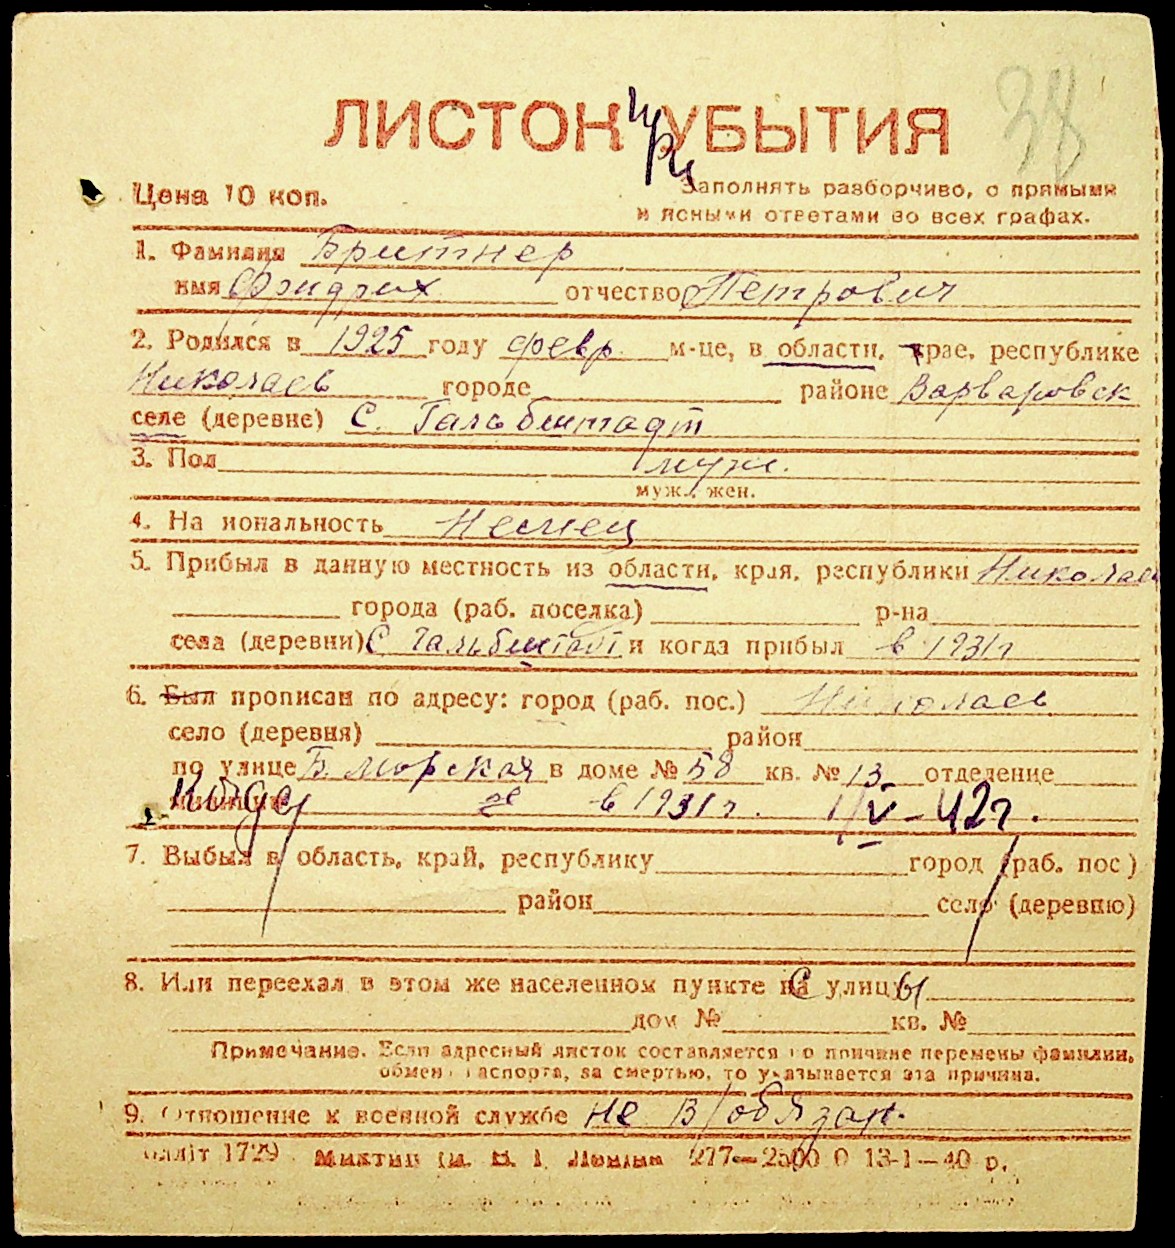 38
ЛИСТОК ПРИ УБЫТИЯ
Цена 10 коп.
Заполнять разборчиво, с прямыми
и ясными ответами во всех графах.
1. Фамилия Бритнер
имя Фридрих отчество Петрович
2. Родился в 1925 году февр. м-це, в области, крае, республике
Николаев городе районе Варваровск
селе (деревне) С. Гальбштадт
3. Пол муж.
муж., жен.
4. На иональность Немец
5. Прибыл в данную местность из области, края, республики Николаев
города (раб. поселка) р-на
села (деревни) С Гальбштадт и когда прибыл в 1931г
6. Был прописан по адресу: город (раб. пос.) Николаев
село (деревня) район
по улице Б. Морская в доме № 58 кв. № 13 отделение
в 1931г. 1/V-42г.
7. Выбыл в область, край, республику город (раб. пос)
район село (деревню)
8. Или переехал в этом же населенном пункте на С улицы
дом № кв. №
Примечание. Если адресный листок составляется по причине перемены фамилии,
обмен паспорта, за смертью, то указывается эта причина.
9. Отношение к военной службе не в/обязан.
блліт 1729 Миктип ім. В. І. Леніна 277—2500 0 13-1—40 р.